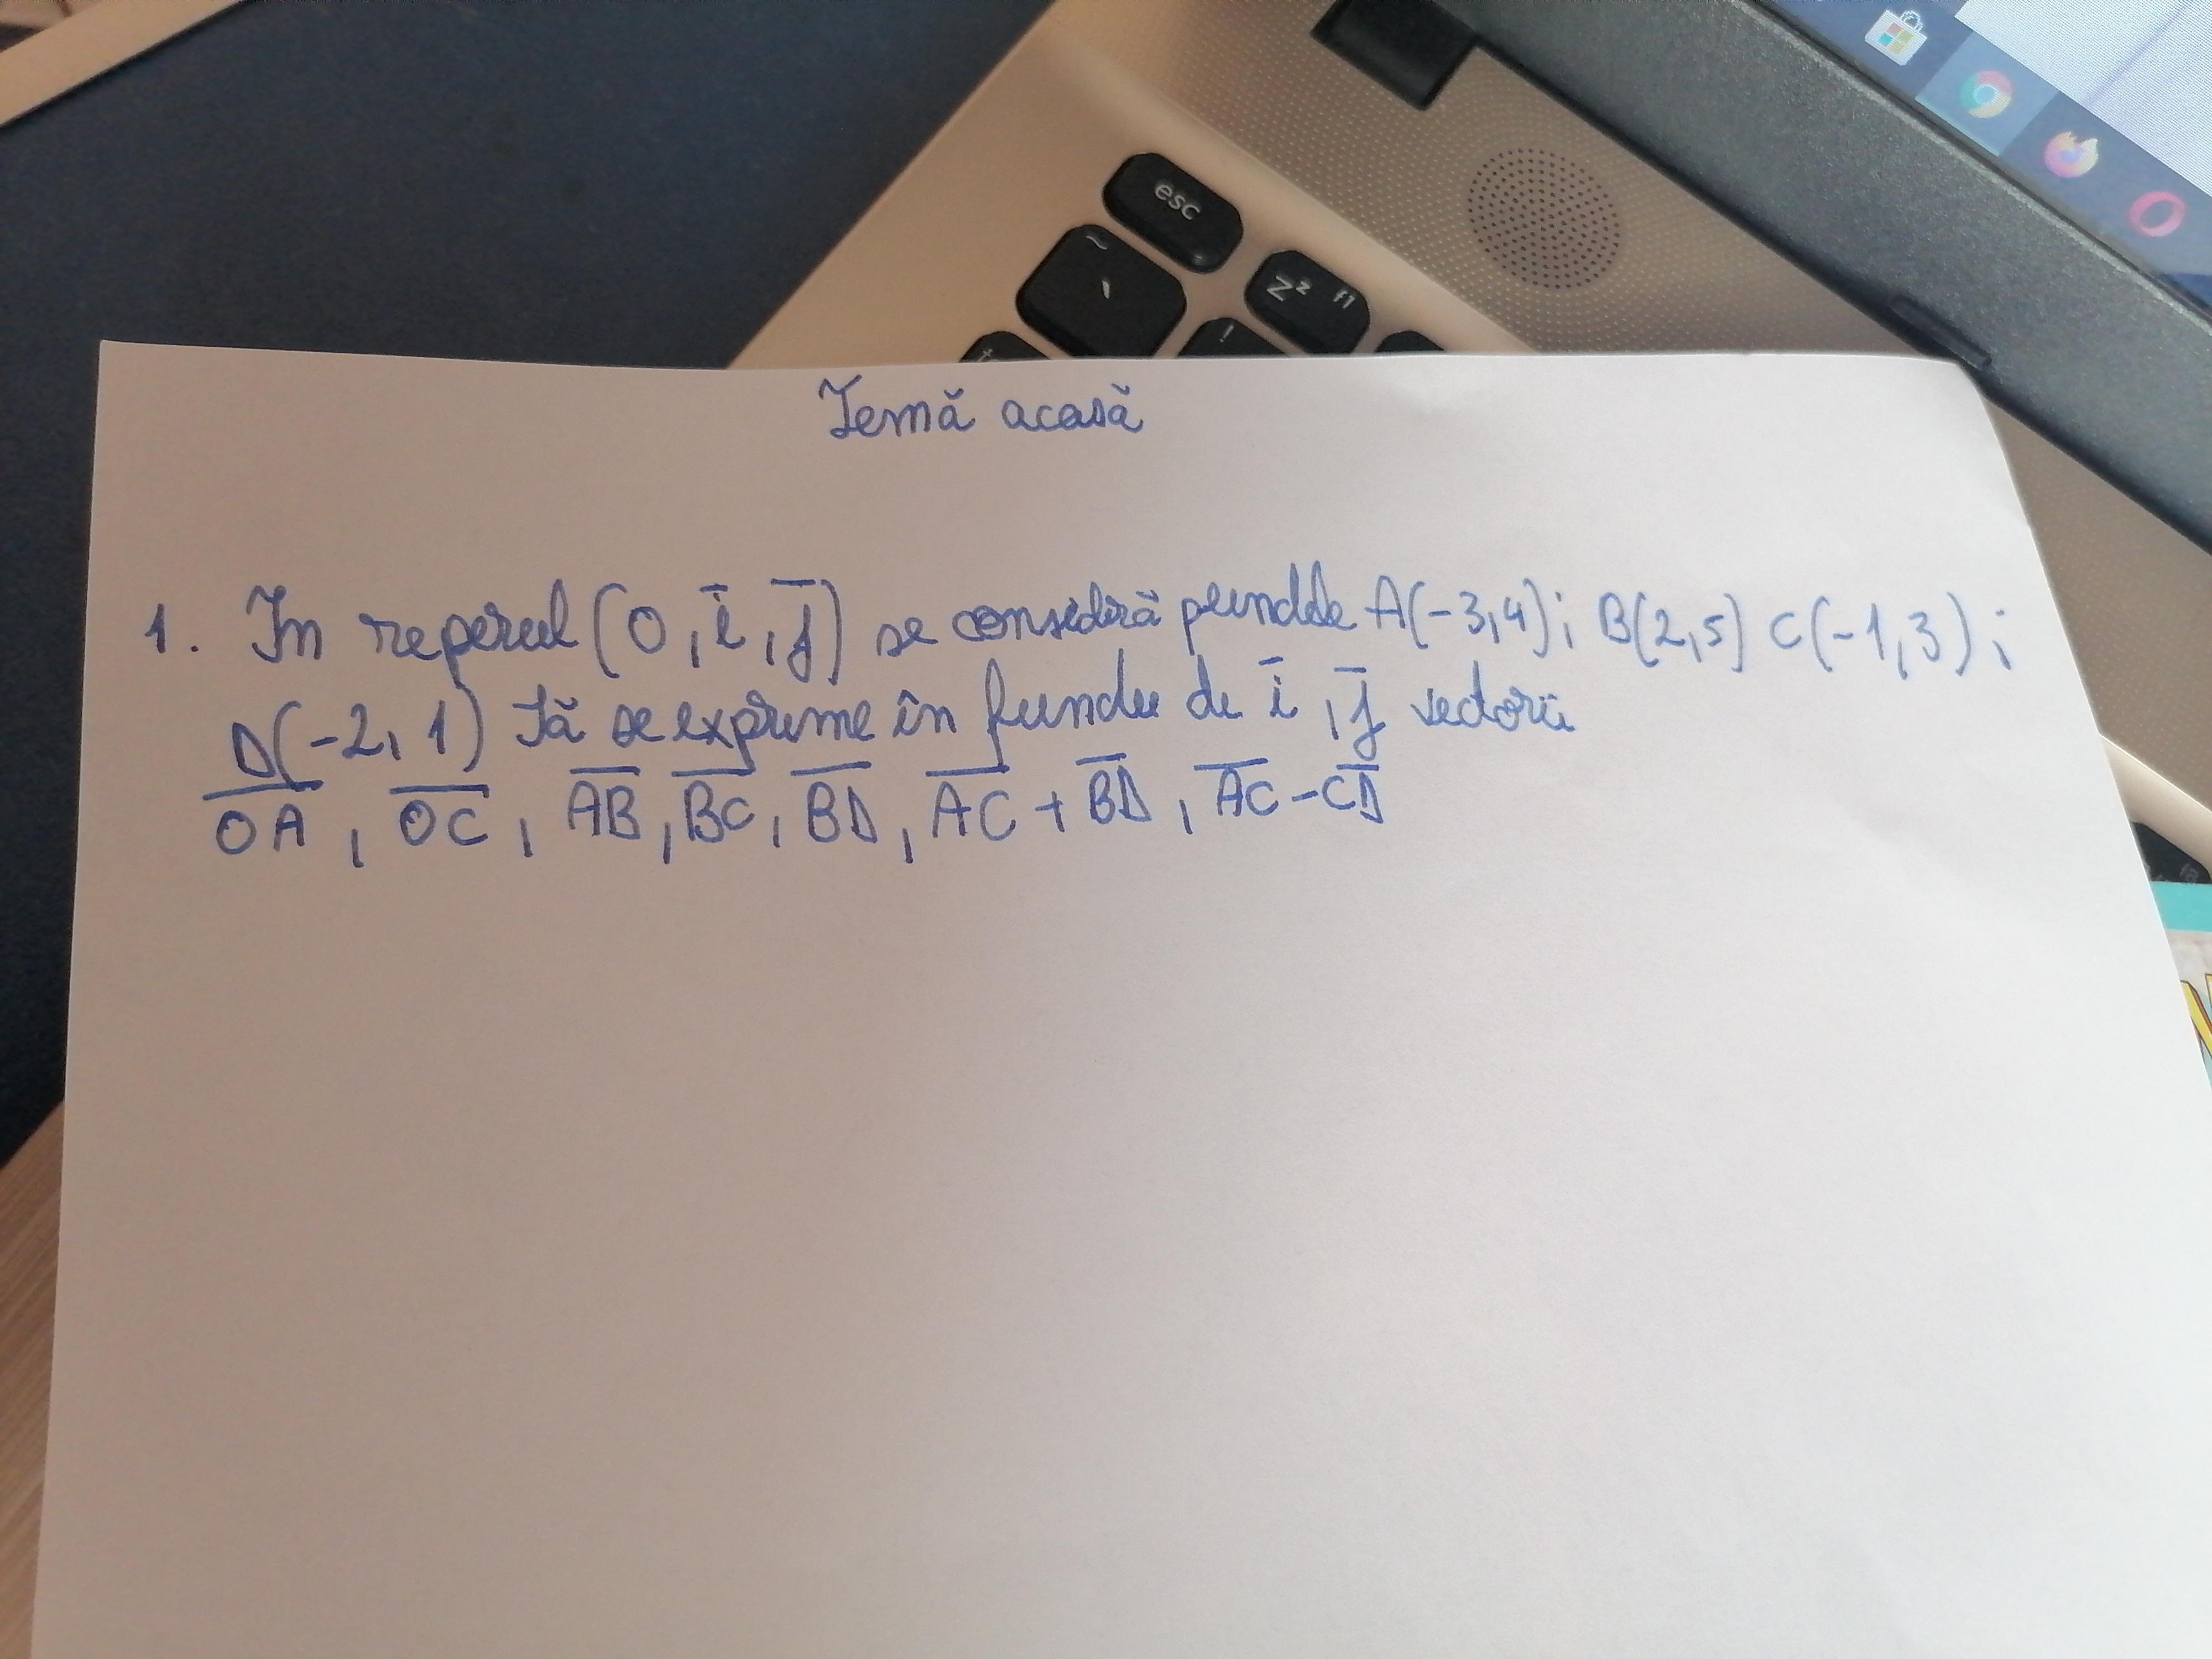 esc
~
'
Zz f1
!
Temă acasă
1. In reperul (O, i̅, j̅) se consideră punctele A(-3,4); B(2,5) C(-1,3);
D(-2,1) Să se exprime în funcție de i̅, j̅ vectorii
O̅A̅, O̅C̅, A̅B̅, B̅C̅, B̅D̅, A̅C̅ + B̅D̅, A̅C̅ - C̅D̅